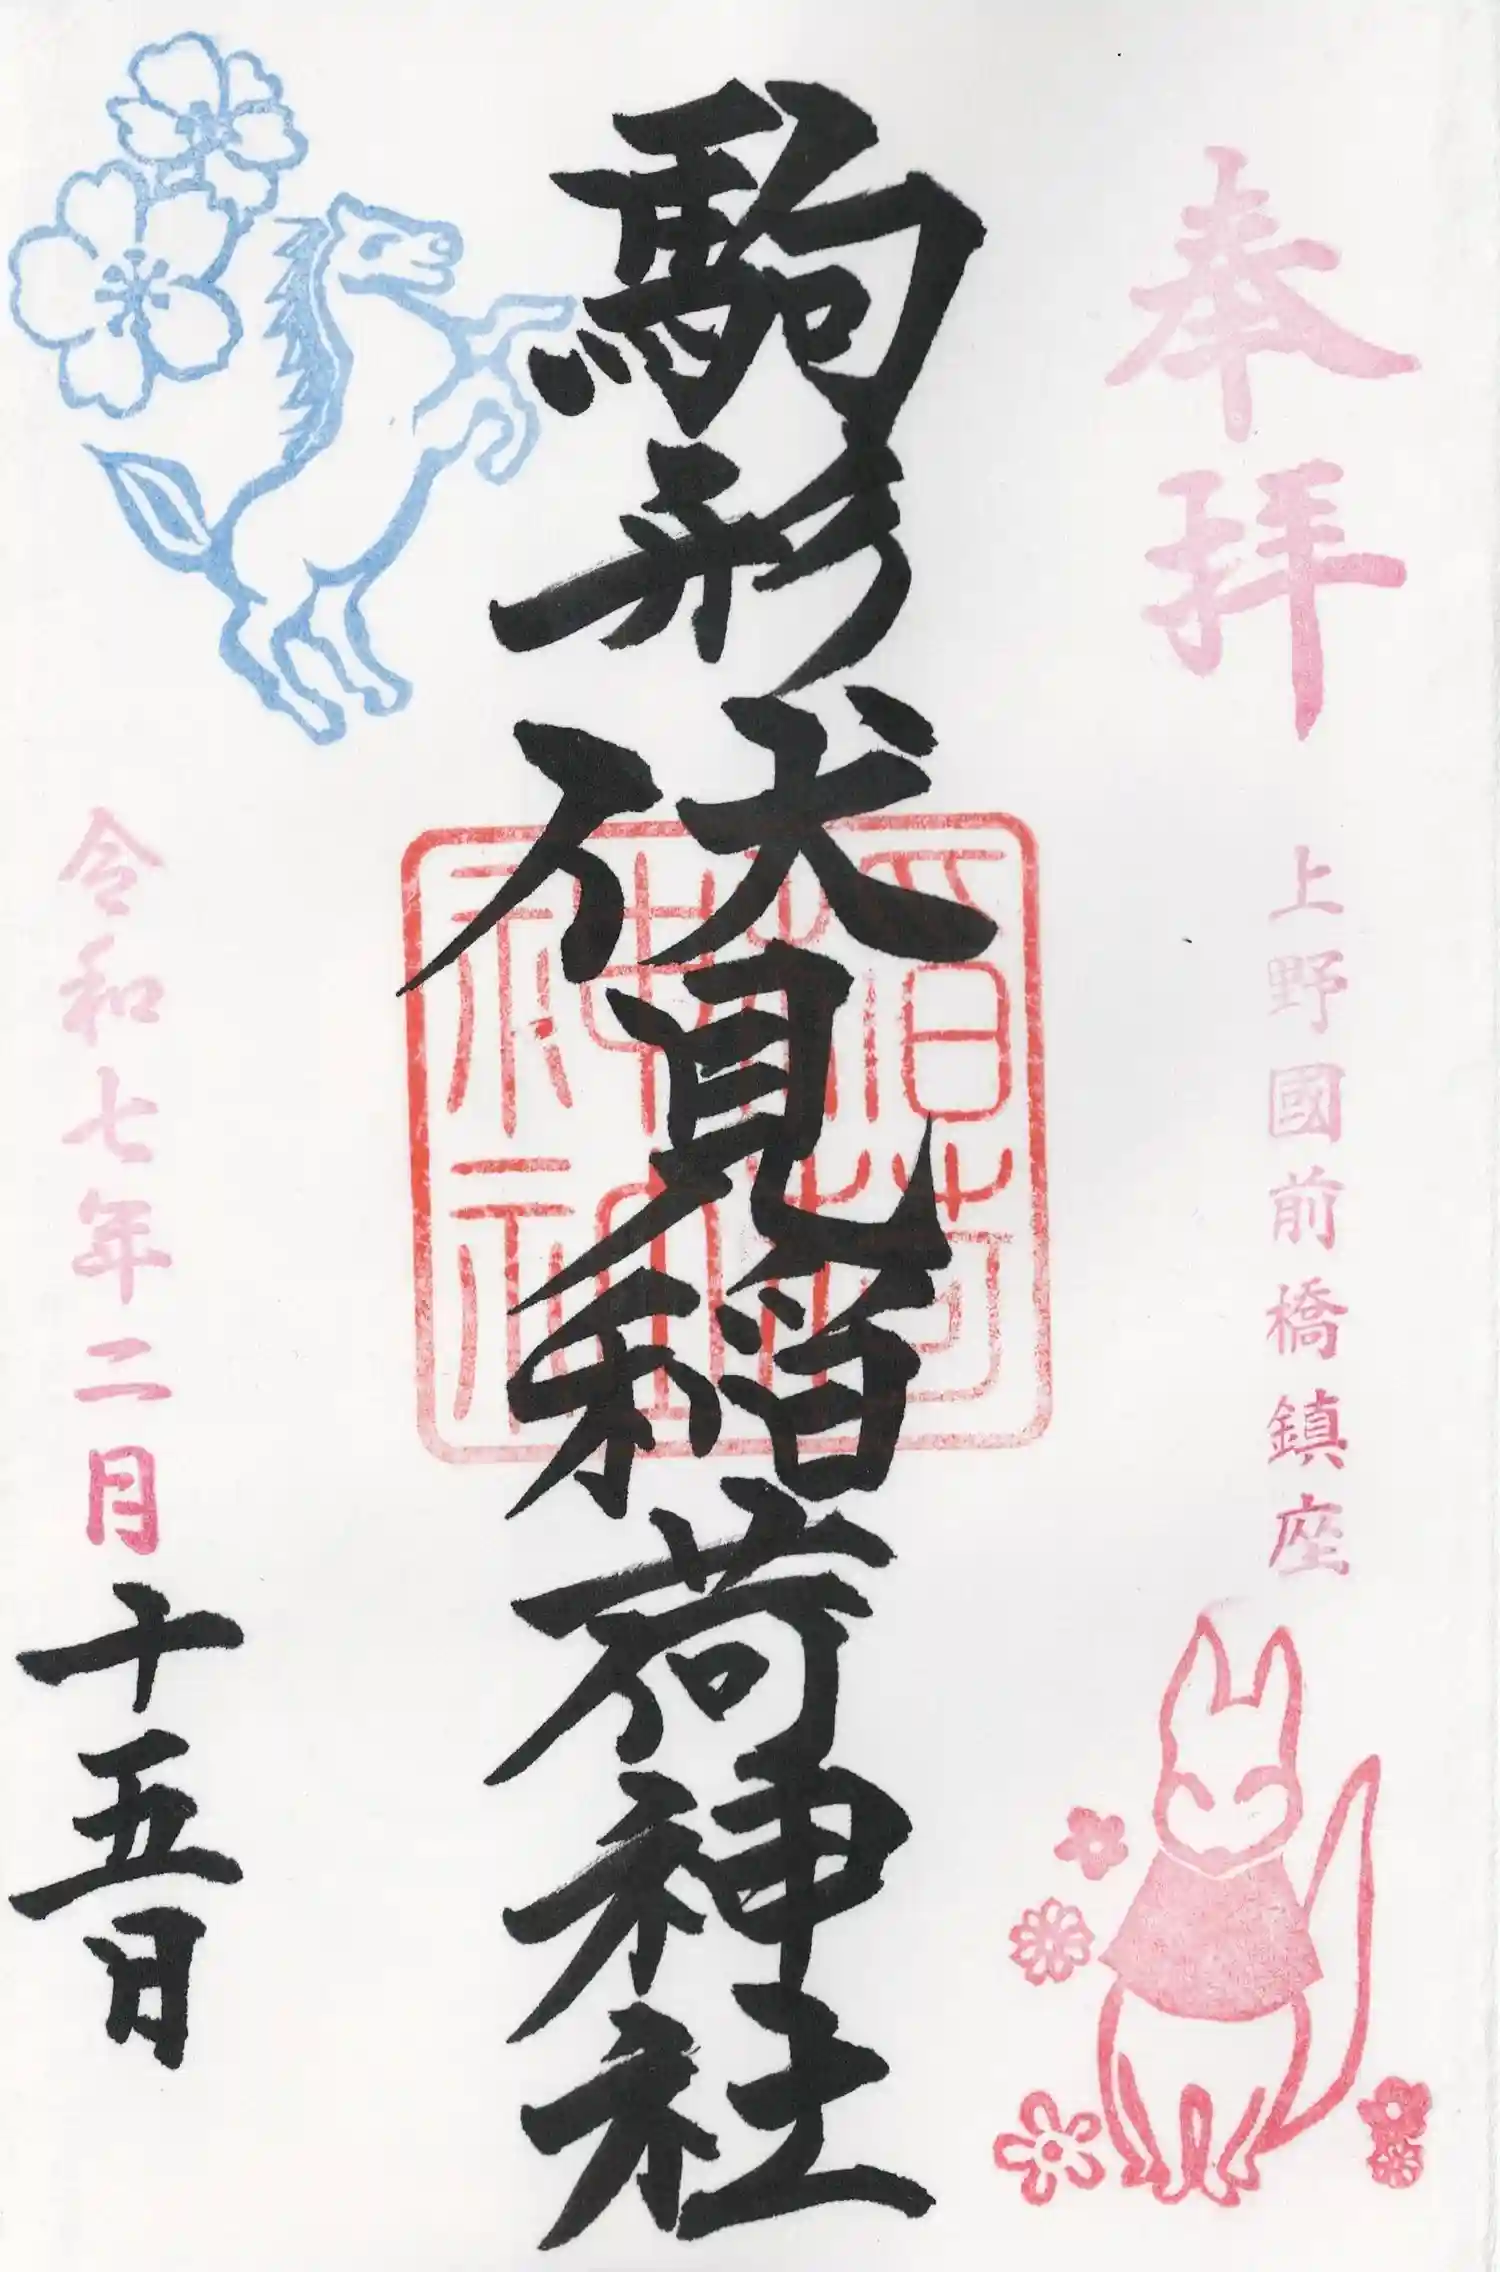 奉拝
上野國前橋鎮座
駒形伏見稲荷神社
稲荷神社
令和七年二月十五日